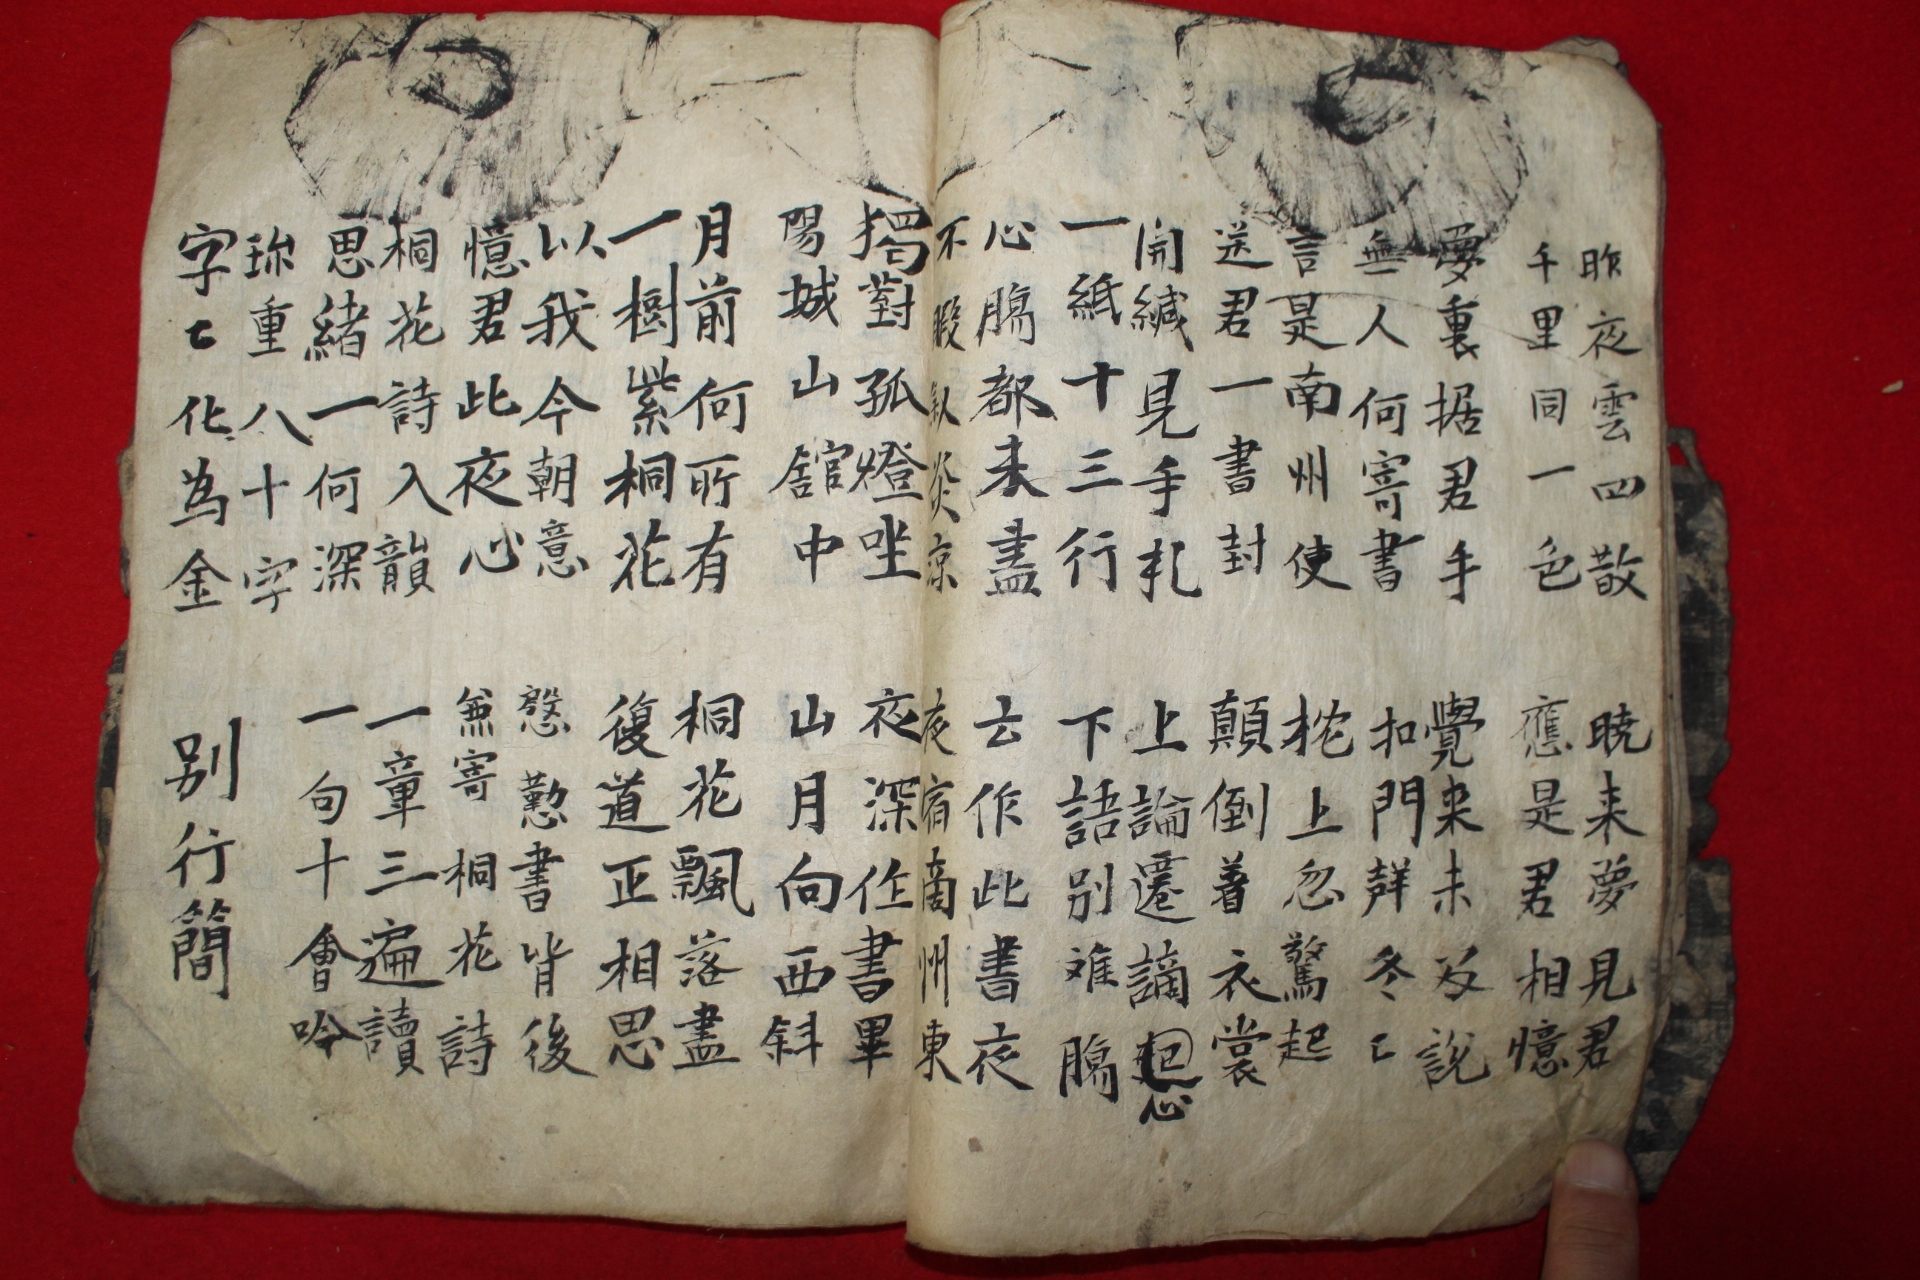 昨夜雲四散
千里同一色
曉来夢見君
應是君相憶
夢裏据君手
無人何寄書
覺来未及說
扣門聲冬〻
言是南州使
送君一書封
枕上忽驚起
顛倒着衣裳
開緘見手札
一紙十三行
上論遷謫心
下語別难膓
心膓都未盡
不暇叙炎凉
云作此書夜
夜宿商州東
獨對孤燈坐
陽城山舘中
夜深作書畢
山月向西斜
月前何所有
一樹紫桐花
桐花飄落盡
復道正相思
以我今朝意
憶君此夜心
慇懃書背後
兼寄桐花詩
桐花詩入韻
思緒一何深
一章三遍讀
一句十會吟
珎重八十字
字〻化為金
別行簡